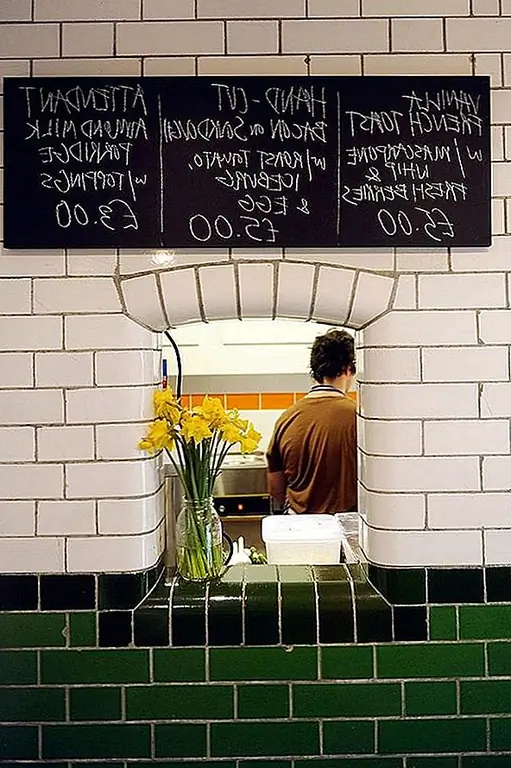 VANILLA
FRENCH TOAST
w/ MASCARPONE
WHIP &
FRESH BERRIES
£5.00
HAND-CUT
BACON on SOURDOUGH
w/ ROAST TOMATO,
ICEBURG
& EGG
£5.00
ATTENDANT
ALMOND MILK
PORRIDGE
w/ TOPPINGS
£3.00